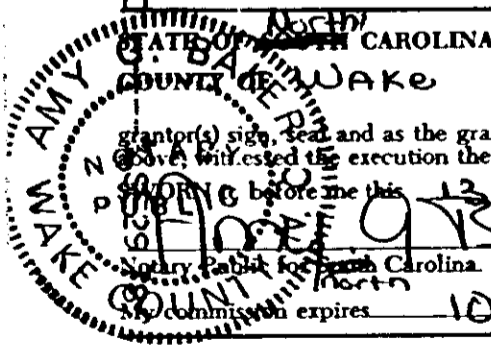 North
STATE OF SOUTH CAROLINA
COUNTY OF Wake
grantor(s) sign, seal and as the gra
above, witnessed the execution the
SWORN to before me this 13
Notary Public for South Carolina
north
My commission expires 10
AMY G. BAKER
NOTARY
PUBLIC
WAKE COUNTY N.C.